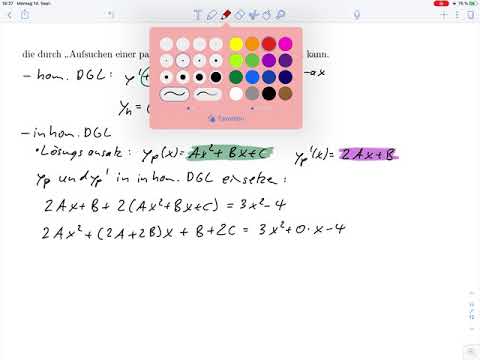 16:27 Montag 14. Sept.
75 %
die durch „Aufsuchen einer pa kann.
– hom. DGL: y'(+ -ax
yₕ = (
– inhom. DGL
• Lösungsansatz: yₚ(x) = Ax² + Bx + C yₚ'(x) = 2Ax + B
Favoriten
yₚ und yₚ' in inhom. DGL einsetzen:
2Ax + B + 2(Ax² + Bx + C) = 3x² – 4
2Ax² + (2A + 2B)x + B + 2C = 3x² + 0·x – 4